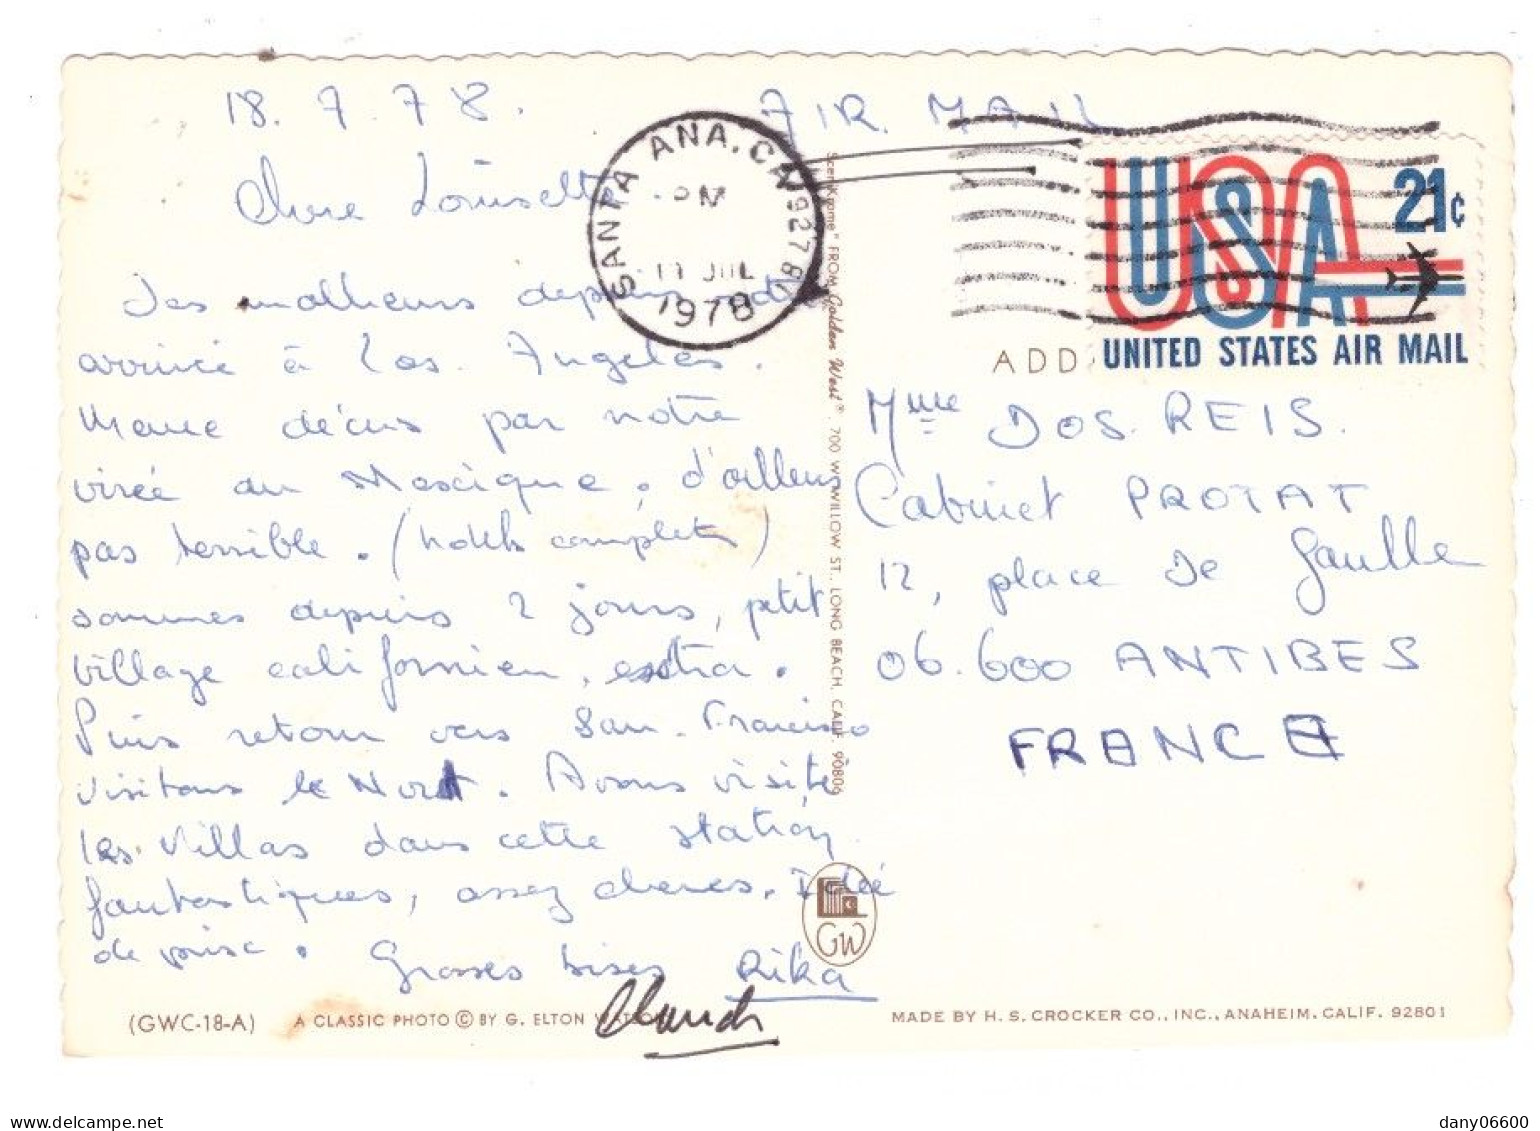 18.7.78.
AIR MAIL
Chere Louisette
SANTA ANA, CA 92781
PM
JUL
1978
USA 21¢
UNITED STATES AIR MAIL
ADD
Des malheurs depuis notre
arrivée à Los. Angeles.
Meme décus par notre
virée au Mexique. d'ailleurs
pas terrible. (hotels complets)
sommes depuis 2 jours, petit
village californien, extra.
Puis retour vers San-Francisco
visitons le Nord. Avons visité
les villas dans cette station,
fantastiques, assez cheres. Idée
de prise. Grosses bises Rika
Mme DOS.REIS.
Cabinet PROTAT
12, place de Gaulle
06.600 ANTIBES
FRANCE
Scenikrome" FROM Golden West® 700 W WILLOW ST., LONG BEACH, CALIF. 90806
GW
(GWC-18-A) A CLASSIC PHOTO © BY G. ELTON
MADE BY H. S. CROCKER CO., INC., ANAHEIM, CALIF. 92801
delcampe.net
dany06600